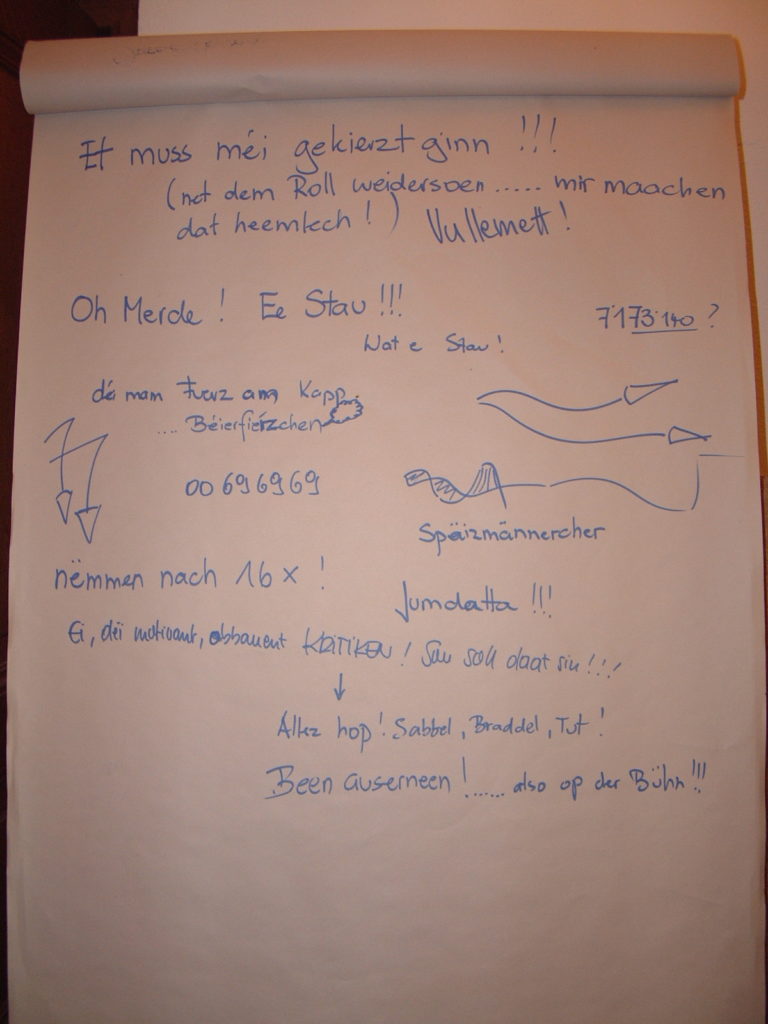 Et muss méi gekierzt ginn !!!
(net dem Roll weidersoen ..... mir maachen
dat heemlech ! ) Vullemett !
Oh Merde ! Ee Stau !!!
7'173'140 ?
Wat e Stau !
déi mam Fuerz am Kapp
.... Béierfierzchen
00 69 69 69
Späizmännercher
nëmmen nach 16 x !
Jumdatta !!!
Ei, déi motivant, obbauent KRITIKEN ! Sou soll daat sin !!!
Allez hop ! Sabbel, Braddel, Tut !
Been auserneen ! ...... also op der Bühn !!!